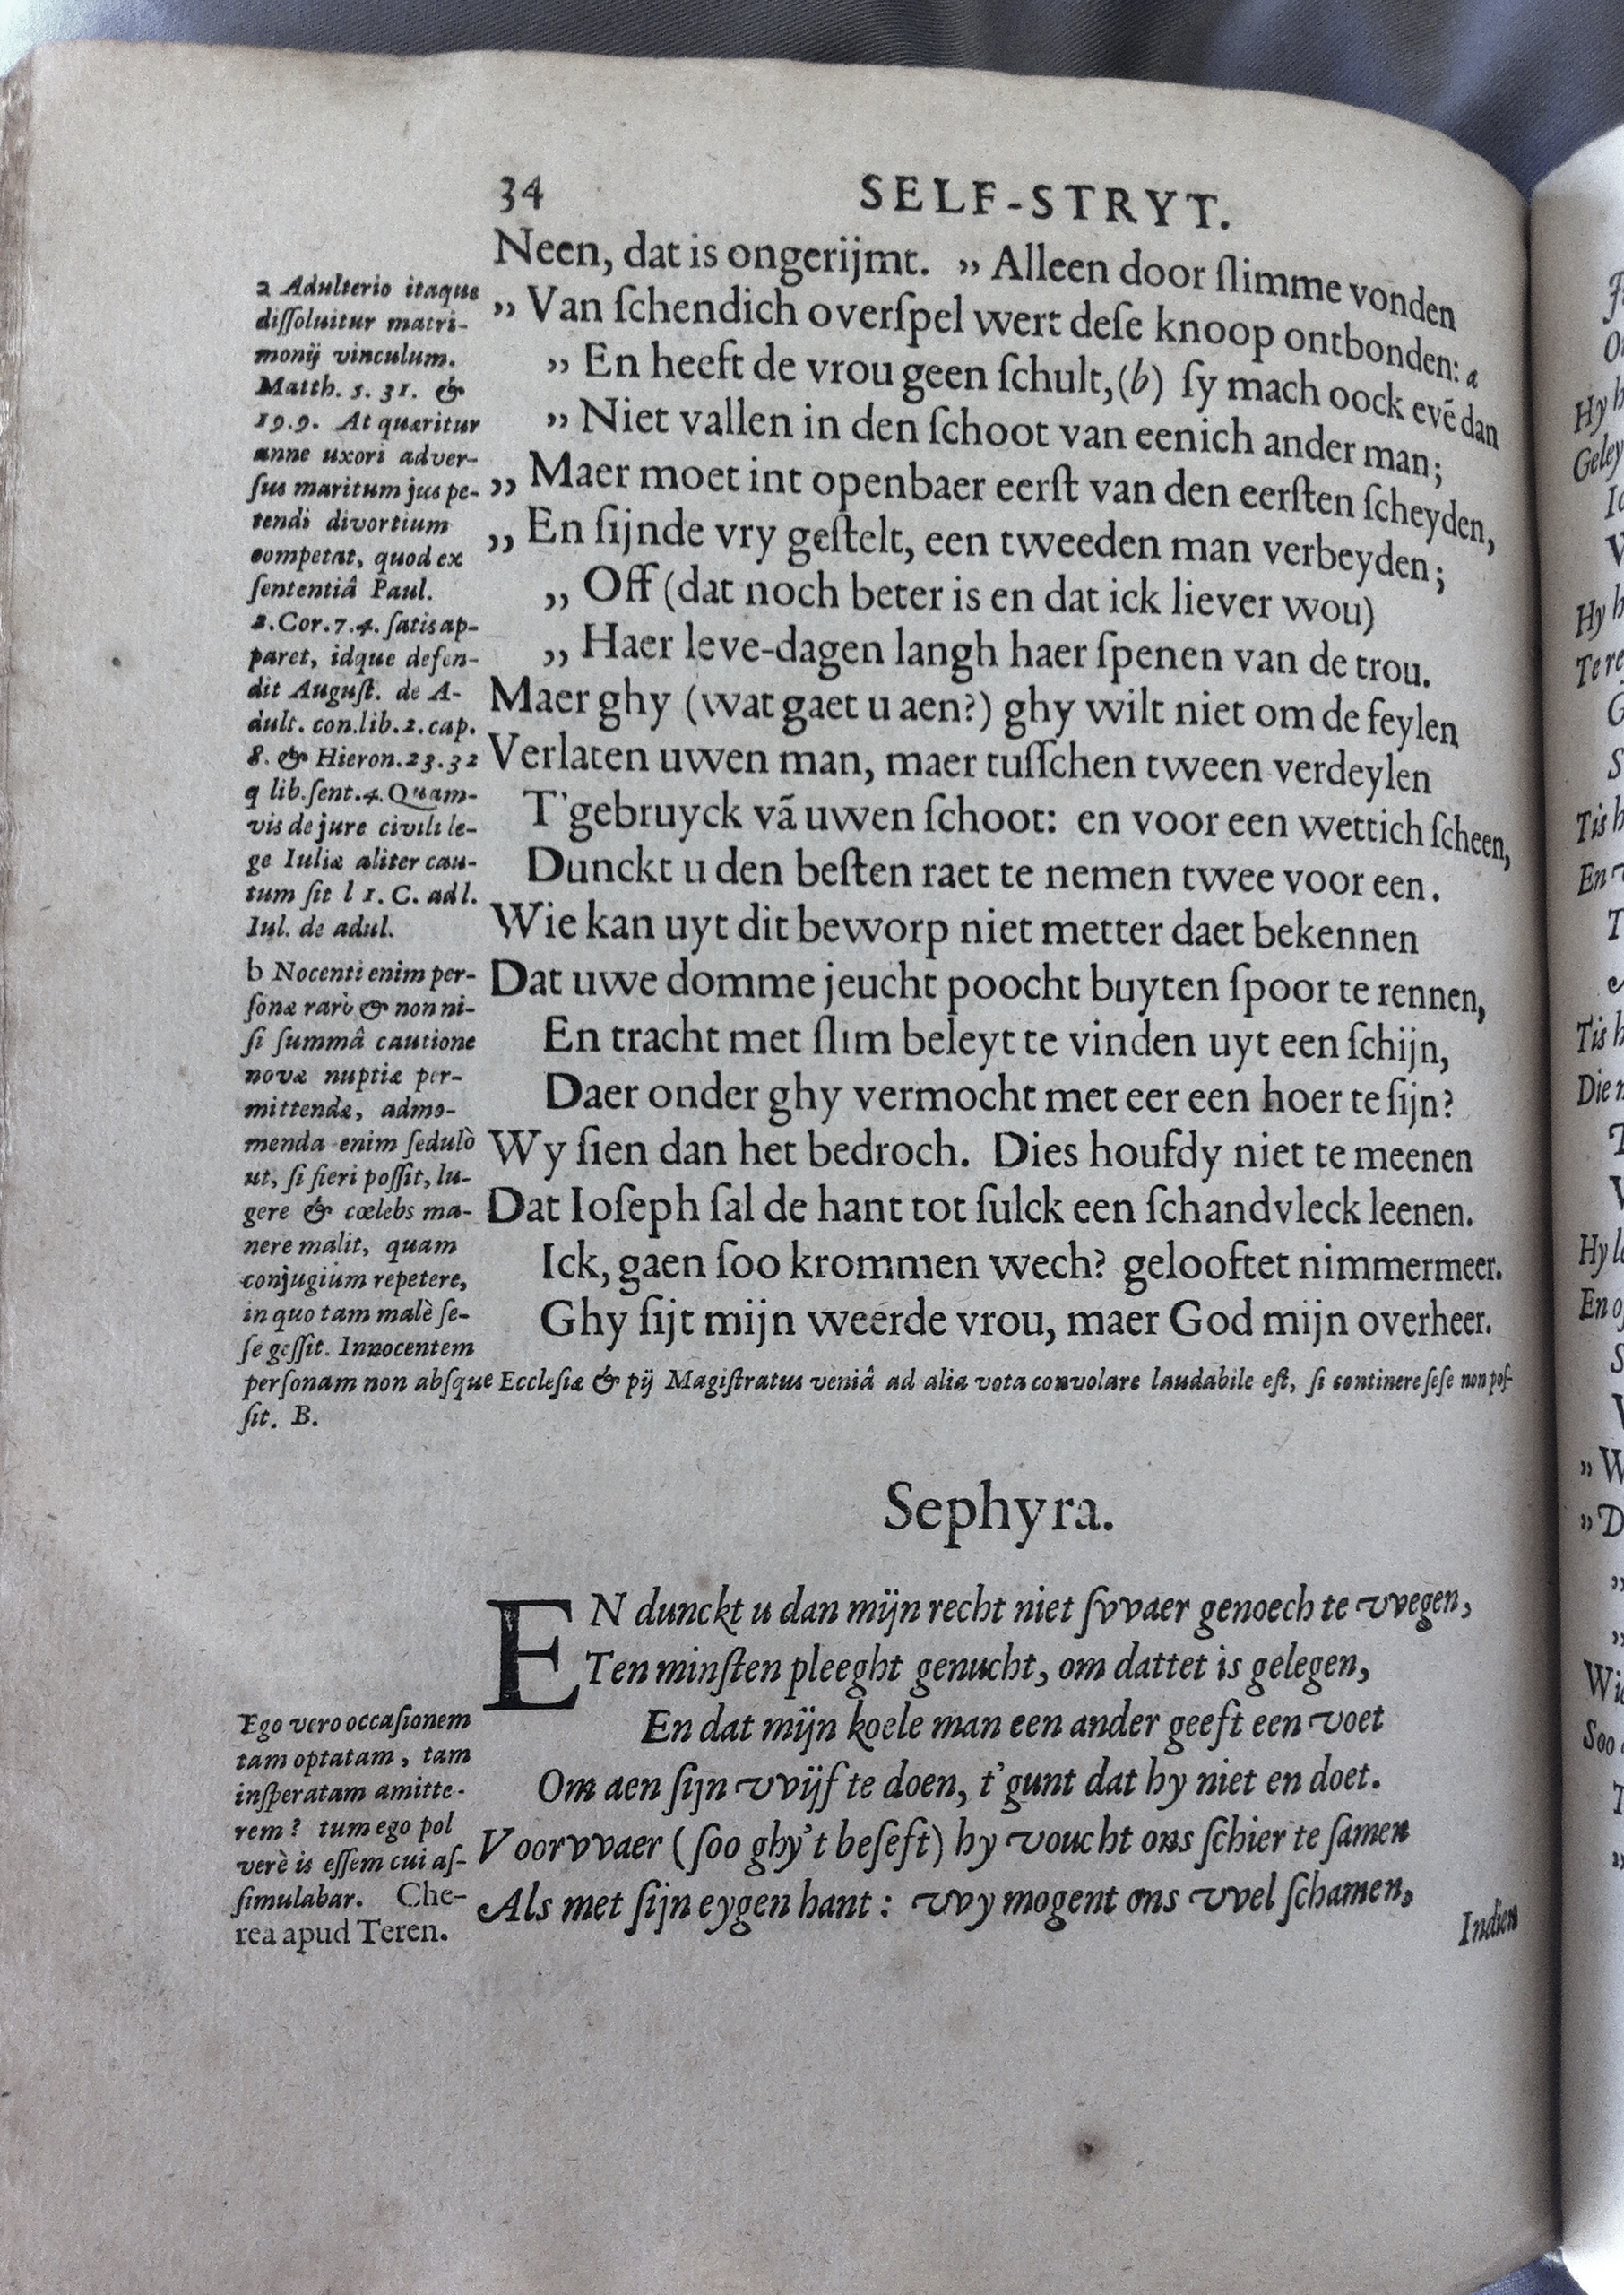 34
SELF-STRYT.
Neen, dat is ongerijmt. ,, Alleen door ſlimme vonden
,, Van ſchendich overſpel wert deſe knoop ontbonden: a
,, En heeft de vrou geen ſchult,(b) ſy mach oock evē dan
,, Niet vallen in den ſchoot van eenich ander man;
,, Maer moet int openbaer eerſt van den eerſten ſcheyden,
,, En ſijnde vry geſtelt, een tweeden man verbeyden;
,, Off (dat noch beter is en dat ick liever wou)
,, Haer leve-dagen langh haer ſpenen van de trou.
Maer ghy (wat gaet u aen?) ghy wilt niet om de feylen
Verlaten uwen man, maer tuſſchen tween verdeylen
T'gebruyck vã uwen ſchoot: en voor een wettich ſcheen,
Dunckt u den beſten raet te nemen twee voor een.
Wie kan uyt dit beworp niet metter daet bekennen
Dat uwe domme jeucht poocht buyten ſpoor te rennen,
En tracht met ſlim beleyt te vinden uyt een ſchijn,
Daer onder ghy vermocht met eer een hoer te ſijn?
Wy ſien dan het bedroch. Dies houfdy niet te meenen
Dat Ioſeph ſal de hant tot ſulck een ſchandvleck leenen.
Ick, gaen ſoo krommen wech? gelooftet nimmermeer.
Ghy ſijt mijn weerde vrou, maer God mijn overheer.
a Adulterio itaque
diſſoluitur matri-
monij vinculum.
Matth. 5. 31. &
19.9. At quæritur
anne uxori adver-
ſus maritum jus pe-
tendi divortium
competat, quod ex
ſententiâ Paul.
1.Cor.7.4. ſatis ap-
paret, idque defen-
dit Auguſt. de A-
dult. con.lib.2.cap.
8. & Hieron.23.32
q lib.ſent.4. Quam-
vis de jure civili le-
ge Iuliæ aliter cau-
tum ſit l 1. C. ad l.
Iul. de adul.
b Nocenti enim per-
ſonæ rarò & non ni-
ſi ſummâ cautione
novæ nuptiæ per-
mittendæ, admo-
menda enim ſedulò
ut, ſi fieri poſſit, lu-
gere & cœlebs ma-
nere malit, quam
conjugium repetere,
in quo tam malè ſe-
ſe geſſit. Innocentem
perſonam non abſque Eccleſiæ & pij Magiſtratus veniâ ad alia vota convolare laudabile eſt, ſi continere ſeſe non poſ-
ſit. B.
Sephyra.
EN dunckt u dan mijn recht niet ſvvaer genoech te vvegen,
Ten minſten pleeght genucht, om dattet is gelegen,
En dat mijn koele man een ander geeft een voet
Om aen ſijn vvijf te doen, t'gunt dat hy niet en doet.
Voorvvaer (ſoo ghy't beſeft) hy voucht ons ſchier te ſamen
Als met ſijn eygen hant: vvy mogent ons vvel ſchamen,
Ego vero occaſionem
tam optatam, tam
inſperatam amitte-
rem? tum ego pol
verè is eſſem cui aſ-
ſimulabar. Che-
rea apud Teren.
Indien